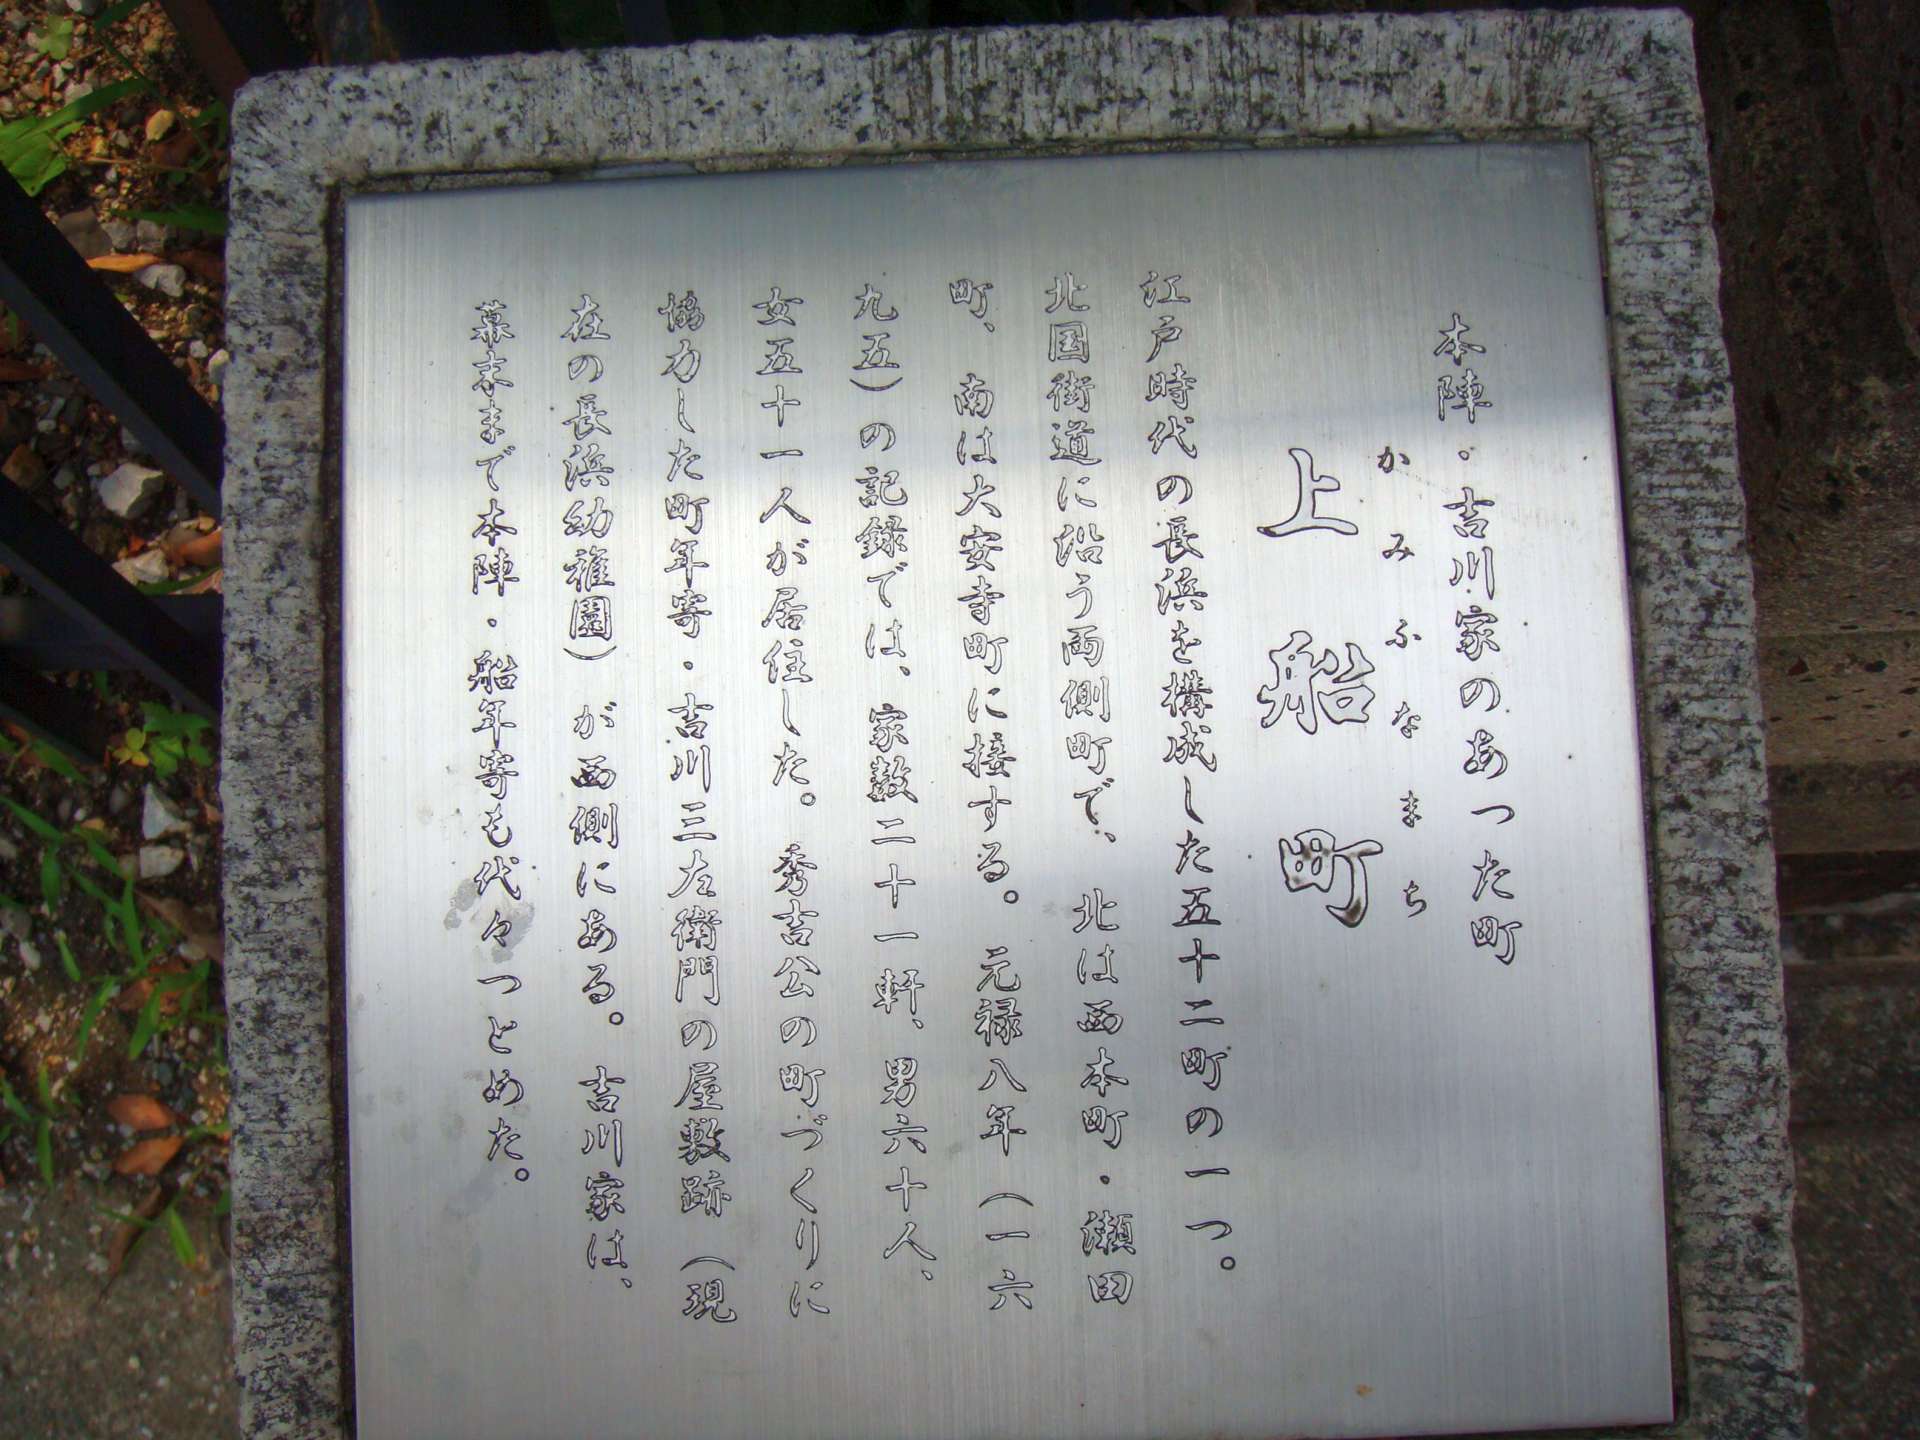 本陣・吉川家のあった町
かみふなまち
上船町
江戸時代の長浜を構成した五十二町の一つ。
北国街道に沿う両側町で、北は西本町・瀬田
町、南は大安寺町に接する。元禄八年（一六
九五）の記録では、家数二十一軒、男六十人、
女五十一人が居住した。秀吉公の町づくりに
協力した町年寄・吉川三左衛門の屋敷跡（現
在の長浜幼稚園）が西側にある。吉川家は、
幕末まで本陣・船年寄も代々つとめた。